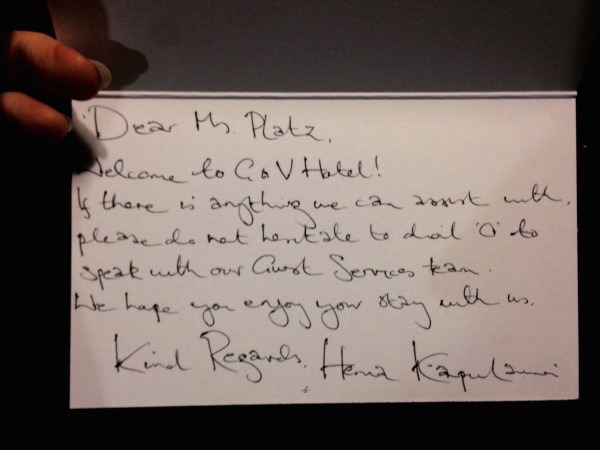 Dear Ms. Platz,
Welcome to G&V Hotel!
If there is anything we can assist with,
please do not hesitate to dial '0' to
speak with our Guest Services team.
We hope you enjoy your stay with us.
Kind Regards,